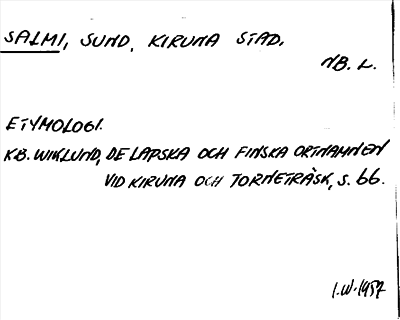 SALMI, SUND, KIRUNA STAD.
NB. L.
ETYMOLOGI.
K.B. WIKLUND, DE LAPSKA OCH FINSKA ORTNAMNEN
VID KIRUNA OCH TORNETRÄSK, S. 66.
I.W. 1957